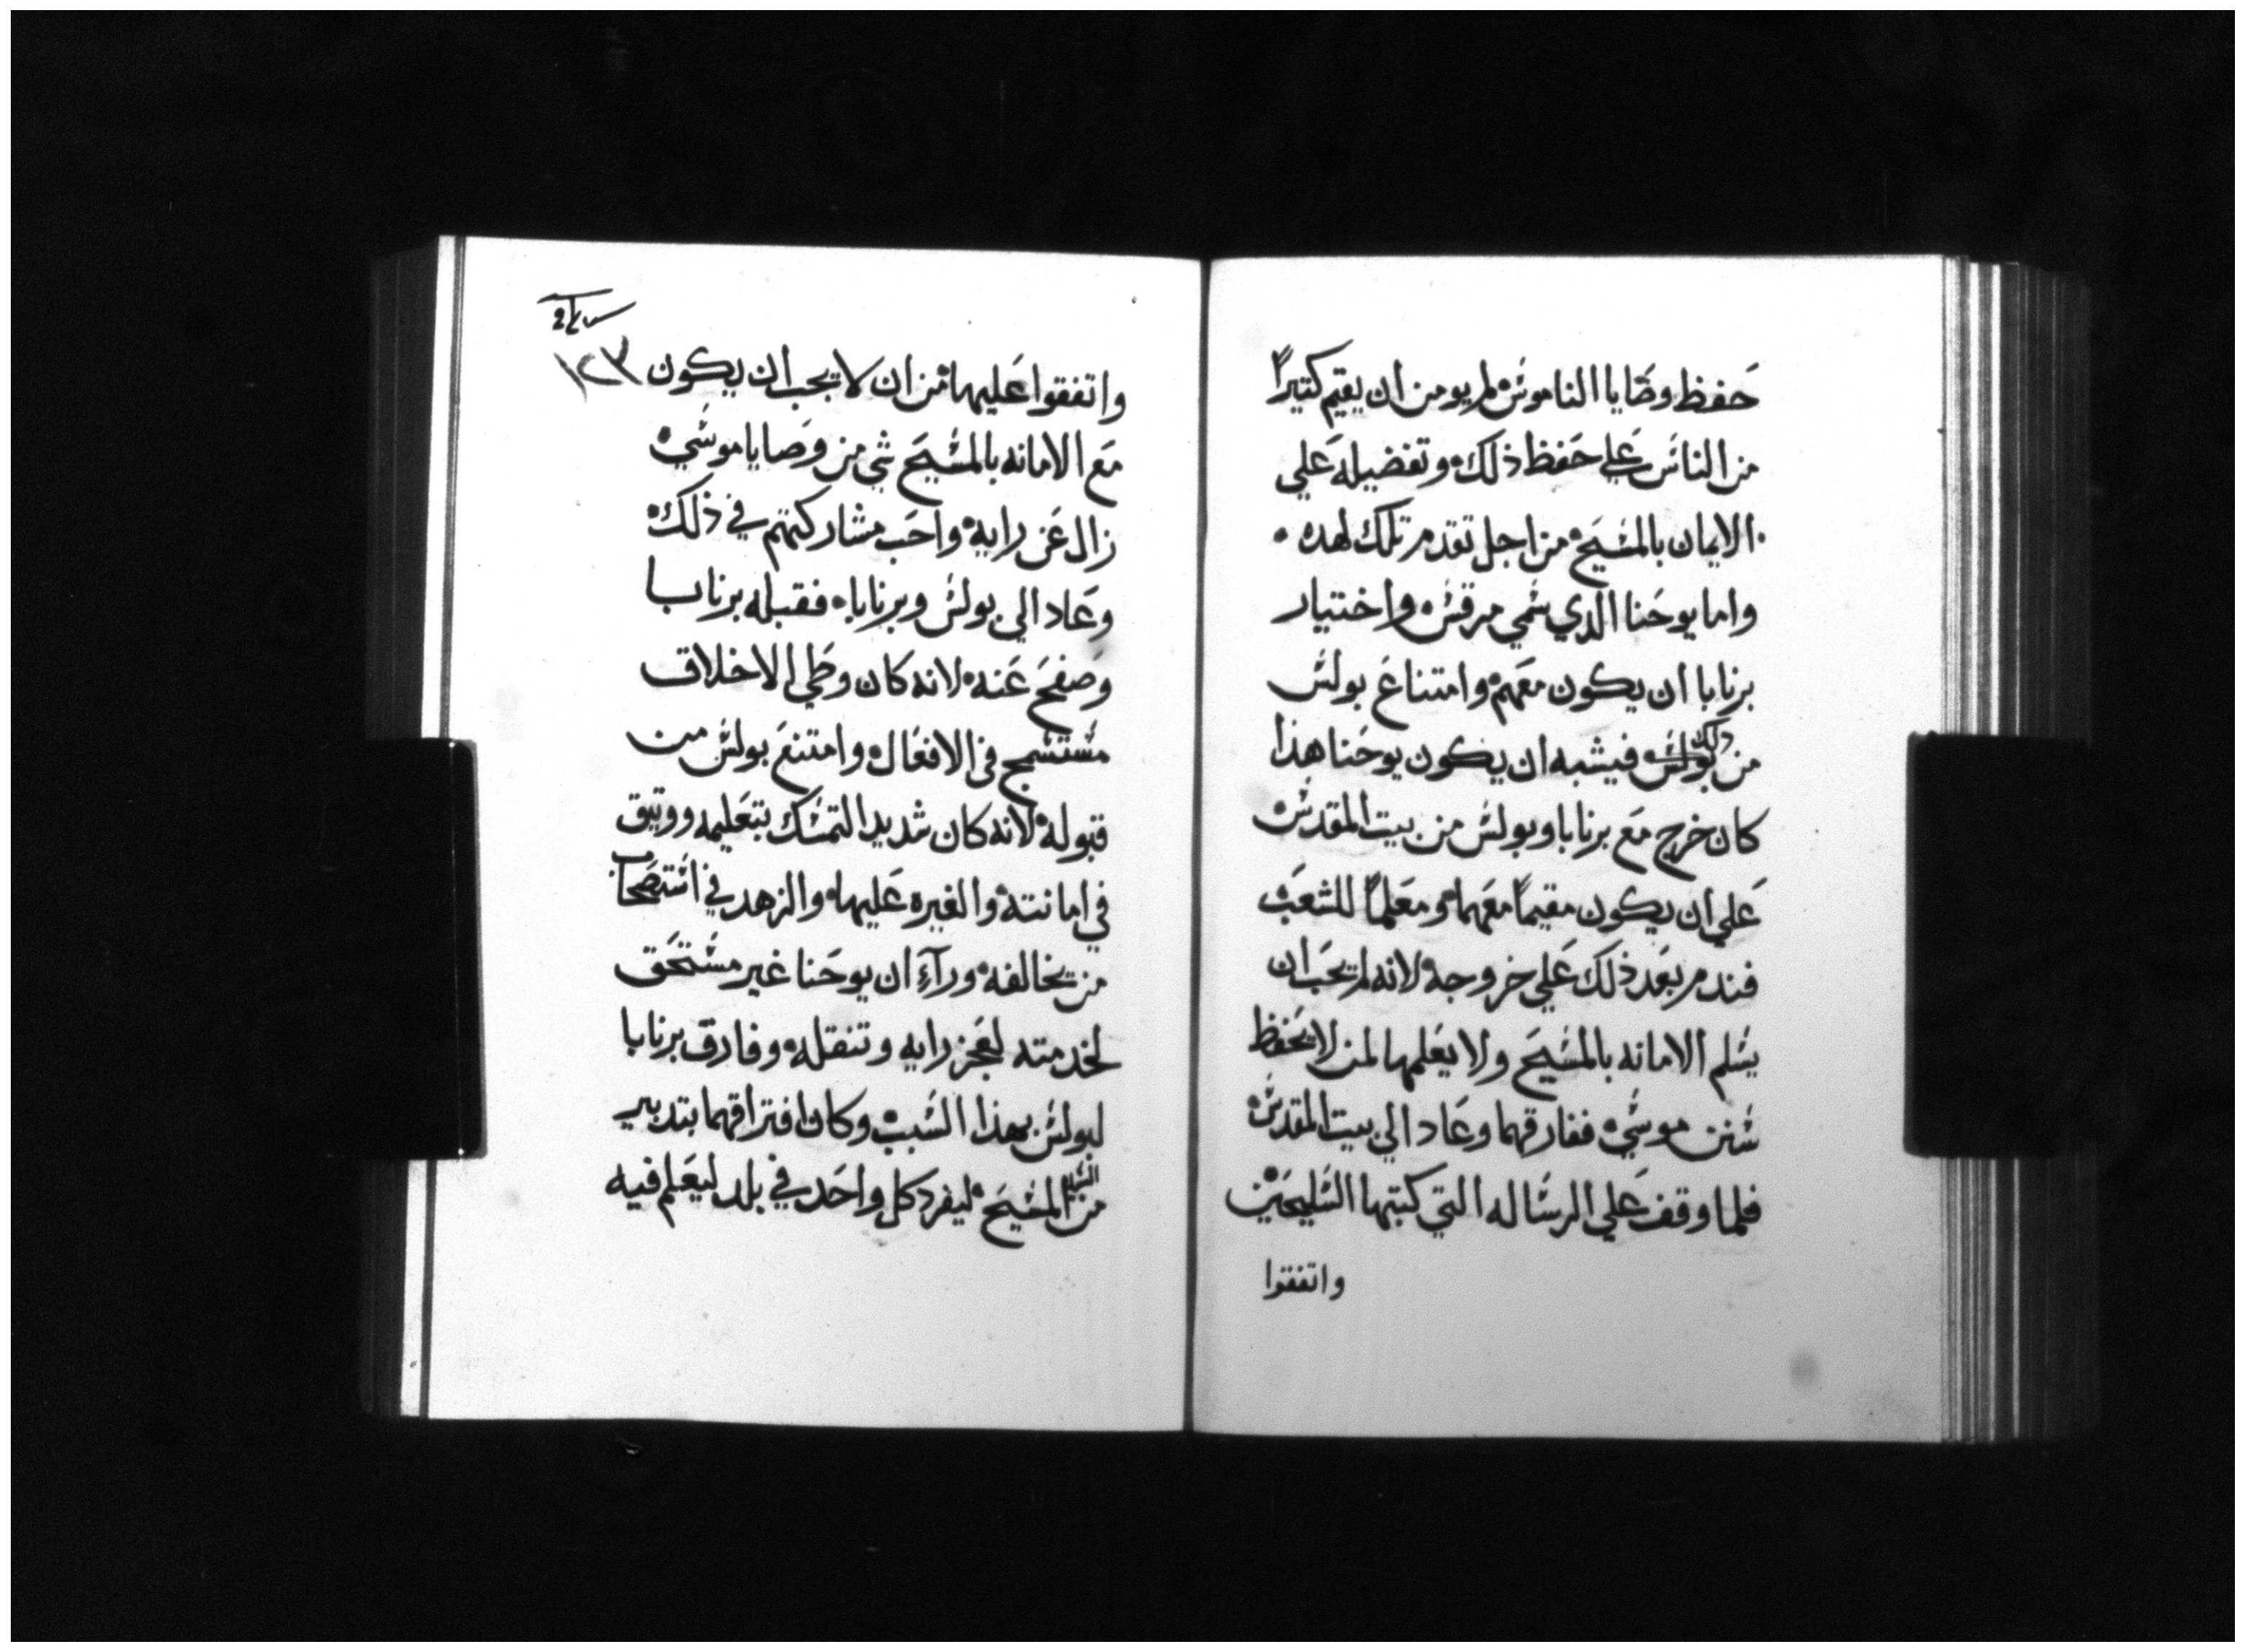 حفظ وصايا الناموس لم يومن ان يقيم كتيراً
من الناس علي حفظ ذلك وتفضيله علي
الايمان بالمسيح من اجل تقدم تلك لهده
واما يوحنا الدي سمي مرقس واختيار
برنابا ان يكون معهم وامتناع بولس
من ذلك بولس فيشبه ان يكون يوحنا هذا
كان خرج مع برنابا وبولس من بيت المقدس
علي ان يكون مقيماً معهما ومعلماً للشعب
فندم بعد ذلك علي خروجه لانه لم يحب ان
يسلم الامانه بالمسيح ولا يعلمها لمن لا يحفظ
سنن موسي ففارقهما وعاد الي بيت المقدس
فلما وقف علي الرساله التي كتبتها السليحين
واتفقوا
١٢٣
واتفقوا عليها من ان لا يجب ان يكون
مع الامانه بالمسيح شي من وصايا موسي
زال عن رايه واحب مشاركتهم في ذلك
وعاد الي بولس وبرنابا فقبله برنابا
وصفح عنه لانه كان وطي الاخلاق
مستسمح في الافعال وامتنع بولس من
قبوله لانه كان شديد التمسك بتعليمه ووتيق
في امانته والغيره عليها والزهد في استصحاب
من يخالفه ورآء ان يوحنا غير مستحق
لخدمته لعجز رايه وتنقله وفارق برنابا
لبولس بهذا السبب وكان افتراقهما بتدبير
من السيد المسيح ليفرد كل واحد في بلد ليعلم فيه